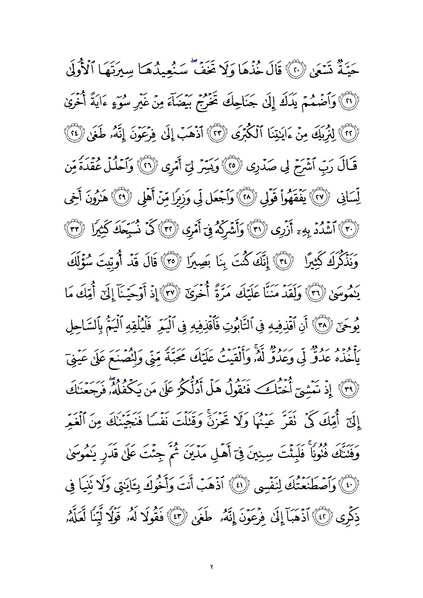 حَيَّةٌ تَسْعَىٰ ﴿٢٠﴾ قَالَ خُذْهَا وَلَا تَخَفْ ۖ سَنُعِيدُهَا سِيرَتَهَا الْأُولَىٰ
﴿٢١﴾ وَاضْمُمْ يَدَكَ إِلَىٰ جَنَاحِكَ تَخْرُجْ بَيْضَاءَ مِنْ غَيْرِ سُوءٍ ءَايَةً أُخْرَىٰ
﴿٢٢﴾ لِنُرِيَكَ مِنْ ءَايَاتِنَا الْكُبْرَى ﴿٢٣﴾ اذْهَبْ إِلَىٰ فِرْعَوْنَ إِنَّهُ طَغَىٰ ﴿٢٤﴾
قَالَ رَبِّ اشْرَحْ لِي صَدْرِي ﴿٢٥﴾ وَيَسِّرْ لِي أَمْرِي ﴿٢٦﴾ وَاحْلُلْ عُقْدَةً مِّن
لِّسَانِي ﴿٢٧﴾ يَفْقَهُوا قَوْلِي ﴿٢٨﴾ وَاجْعَل لِّي وَزِيرًا مِّنْ أَهْلِي ﴿٢٩﴾ هَارُونَ أَخِي
﴿٣٠﴾ اشْدُدْ بِهِ أَزْرِي ﴿٣١﴾ وَأَشْرِكْهُ فِي أَمْرِي ﴿٣٢﴾ كَيْ نُسَبِّحَكَ كَثِيرًا ﴿٣٣﴾
وَنَذْكُرَكَ كَثِيرًا ﴿٣٤﴾ إِنَّكَ كُنتَ بِنَا بَصِيرًا ﴿٣٥﴾ قَالَ قَدْ أُوتِيتَ سُؤْلَكَ
يَامُوسَىٰ ﴿٣٦﴾ وَلَقَدْ مَنَنَّا عَلَيْكَ مَرَّةً أُخْرَىٰ ﴿٣٧﴾ إِذْ أَوْحَيْنَا إِلَىٰ أُمِّكَ مَا
يُوحَىٰ ﴿٣٨﴾ أَنِ اقْذِفِيهِ فِي التَّابُوتِ فَاقْذِفِيهِ فِي الْيَمِّ فَلْيُلْقِهِ الْيَمُّ بِالسَّاحِلِ
يَأْخُذْهُ عَدُوٌّ لِّي وَعَدُوٌّ لَّهُ ۚ وَأَلْقَيْتُ عَلَيْكَ مَحَبَّةً مِّنِّي وَلِتُصْنَعَ عَلَىٰ عَيْنِي
﴿٣٩﴾ إِذْ تَمْشِي أُخْتُكَ فَتَقُولُ هَلْ أَدُلُّكُمْ عَلَىٰ مَن يَكْفُلُهُ ۖ فَرَجَعْنَاكَ
إِلَىٰ أُمِّكَ كَيْ تَقَرَّ عَيْنُهَا وَلَا تَحْزَنَ ۚ وَقَتَلْتَ نَفْسًا فَنَجَّيْنَاكَ مِنَ الْغَمِّ
وَفَتَنَّاكَ فُتُونًا ۚ فَلَبِثْتَ سِنِينَ فِي أَهْلِ مَدْيَنَ ثُمَّ جِئْتَ عَلَىٰ قَدَرٍ يَامُوسَىٰ
﴿٤٠﴾ وَاصْطَنَعْتُكَ لِنَفْسِي ﴿٤١﴾ اذْهَبْ أَنتَ وَأَخُوكَ بِـَٔايَاتِي وَلَا تَنِيَا فِي
ذِكْرِي ﴿٤٢﴾ اذْهَبَا إِلَىٰ فِرْعَوْنَ إِنَّهُ طَغَىٰ ﴿٤٣﴾ فَقُولَا لَهُ قَوْلًا لَّيِّنًا لَّعَلَّهُ
٢